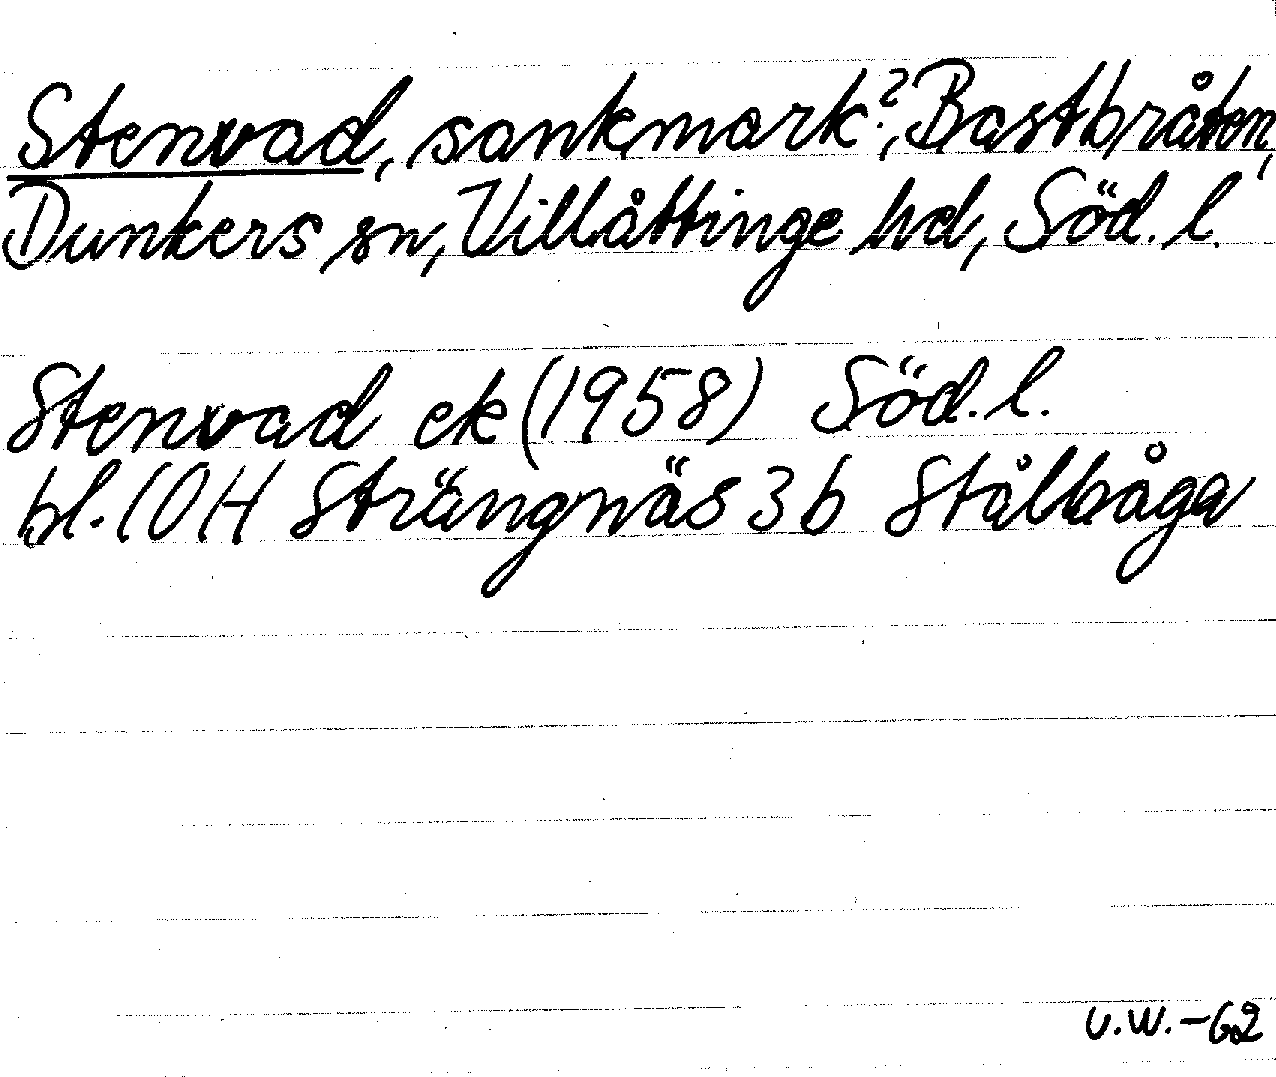 Stenvad, sankmark?, Bastbråten,
Dunkers sn, Villåttinge hd, Söd. l.
Stenvad ek (1958) Söd. l.
bl. 10H Strängnäs 3b Stålbåga
U.W.-62